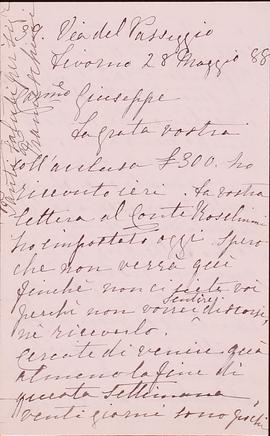 39. Via del Passeggio
Livorno 28 Maggio 88
Giuseppe
La grata vostra
coll'acclusa £300. ho
ricevuto ieri. La vostra
lettera al Conte Rosselmini
ho impostato oggi. Spero
che non verrà qui
finchè non ci siete voi
perchè non vorrei discorsi,
Sentirsi
nè riceverlo.
Cercate di venire quà
almeno la fine di
questa Settimana
venti giorni sono